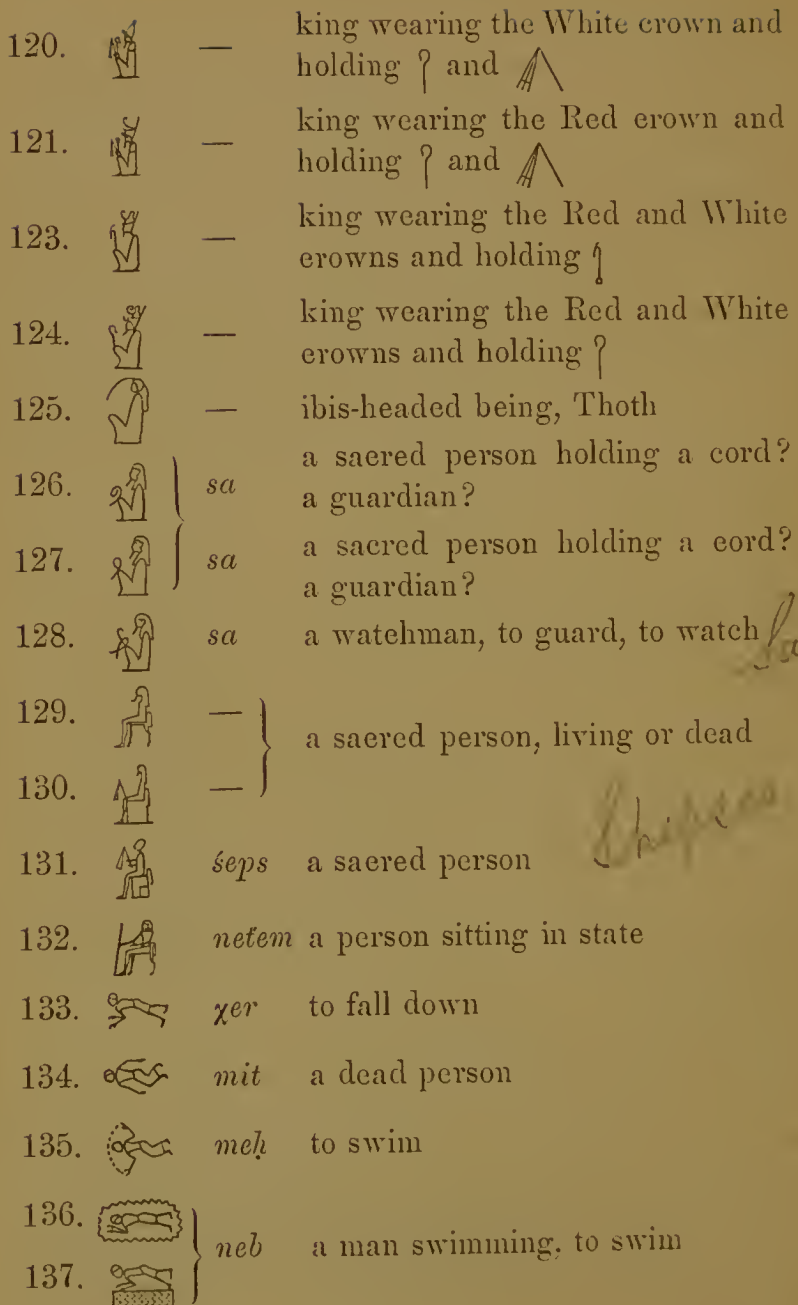 120. — king wearing the White crown and
holding and
121. — king wearing the Red crown and
holding and
123. — king wearing the Red and White
crowns and holding
124. — king wearing the Red and White
crowns and holding
125. — ibis-headed being, Thoth
126. sa a sacred person holding a cord?
a guardian?
127. sa a sacred person holding a cord?
a guardian?
128. sa a watchman, to guard, to watch
129. —
a sacred person, living or dead
130. —
131. śeps a sacred person
132. netem a person sitting in state
133. χer to fall down
134. mit a dead person
135. meḥ to swim
136.
neb a man swimming, to swim
137.